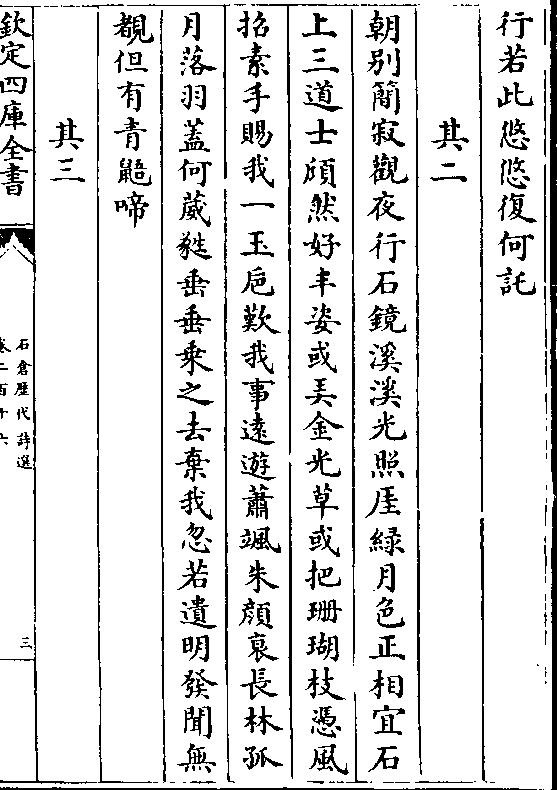 行若此悠悠復何託
其二
朝别簡寂觀夜行石鏡溪溪光照厓綠月色正相宜石
上三道士頎然好丰姿或弄金光草或把珊瑚枝憑風
招素手賜我一玉巵歎我事遠遊蕭颯朱顔衰長林孤
月落羽蓋何葳蕤垂垂乗之去棄我忽若遺明發聞無
覩但有青鼯啼
其三
欽定四庫全書
石倉歴代詩選
卷二百十六
三